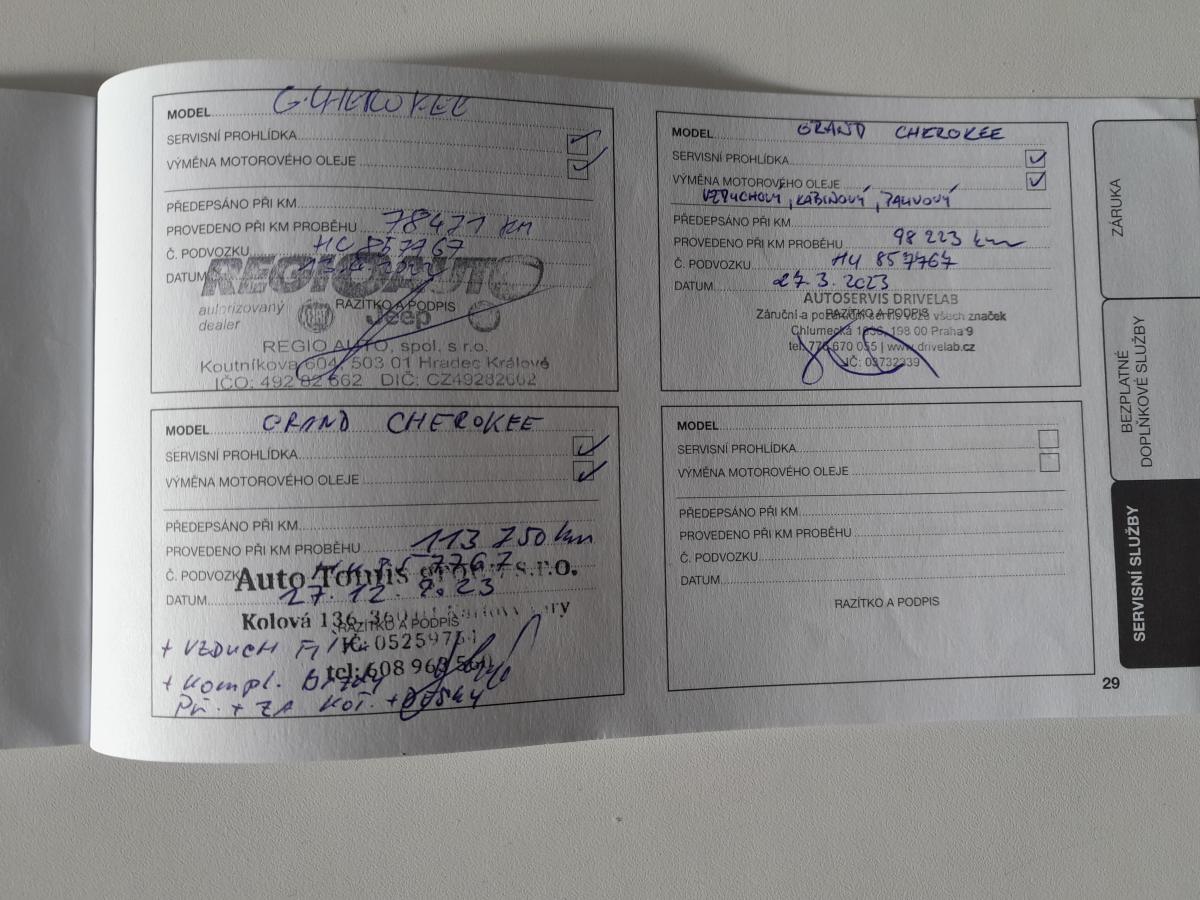 MODEL G.CHEROKEE
SERVISNÍ PROHLÍDKA
VÝMĚNA MOTOROVÉHO OLEJE
PŘEDEPSÁNO PŘI KM
PROVEDENO PŘI KM PROBĚHU 78471 KM
Č. PODVOZKU HC 857767
DATUM
REGIO AUTO
RAZÍTKO A PODPIS
autorizovaný
dealer
FIAT Jeep
REGIO AUTO, spol. s r.o.
Koutníkova 604, 503 01 Hradec Králové
IČO: 492 82 662 DIČ: CZ49282662
MODEL GRAND CHEROKEE
SERVISNÍ PROHLÍDKA
VÝMĚNA MOTOROVÉHO OLEJE
PŘEDEPSÁNO PŘI KM
PROVEDENO PŘI KM PROBĚHU 113 750 km
Č. PODVOZKU 857767
Auto Tomis s.r.o.
DATUM 27. 12. 2023
Kolová 136, 360 01 Karlovy Vary
RAZÍTKO A PODPIS
+ VZDUCH FiL.
+ Kompl. Brzdy
Př. + ZA KOT. + DESKY
MODEL GRAND CHEROKEE
SERVISNÍ PROHLÍDKA
VÝMĚNA MOTOROVÉHO OLEJE
VZDUCHOVÝ, KABINOVÝ, PALIVOVÝ
PŘEDEPSÁNO PŘI KM
PROVEDENO PŘI KM PROBĚHU 98 223 km
Č. PODVOZKU HY 857767
DATUM 27.3.2023
AUTOSERVIS DRIVELAB
RAZÍTKO A PODPIS
Záruční a pozáruční servis vozů všech značek
Chlumecká 198 00 Praha 9
tel. 670 055 | www.drivelab.cz
IČ: 03732339
MODEL
SERVISNÍ PROHLÍDKA
VÝMĚNA MOTOROVÉHO OLEJE
PŘEDEPSÁNO PŘI KM
PROVEDENO PŘI KM PROBĚHU
Č. PODVOZKU
DATUM
RAZÍTKO A PODPIS
ZÁRUKA
BEZPLATNÉ
DOPLŇKOVÉ SLUŽBY
SERVISNÍ SLUŽBY
29